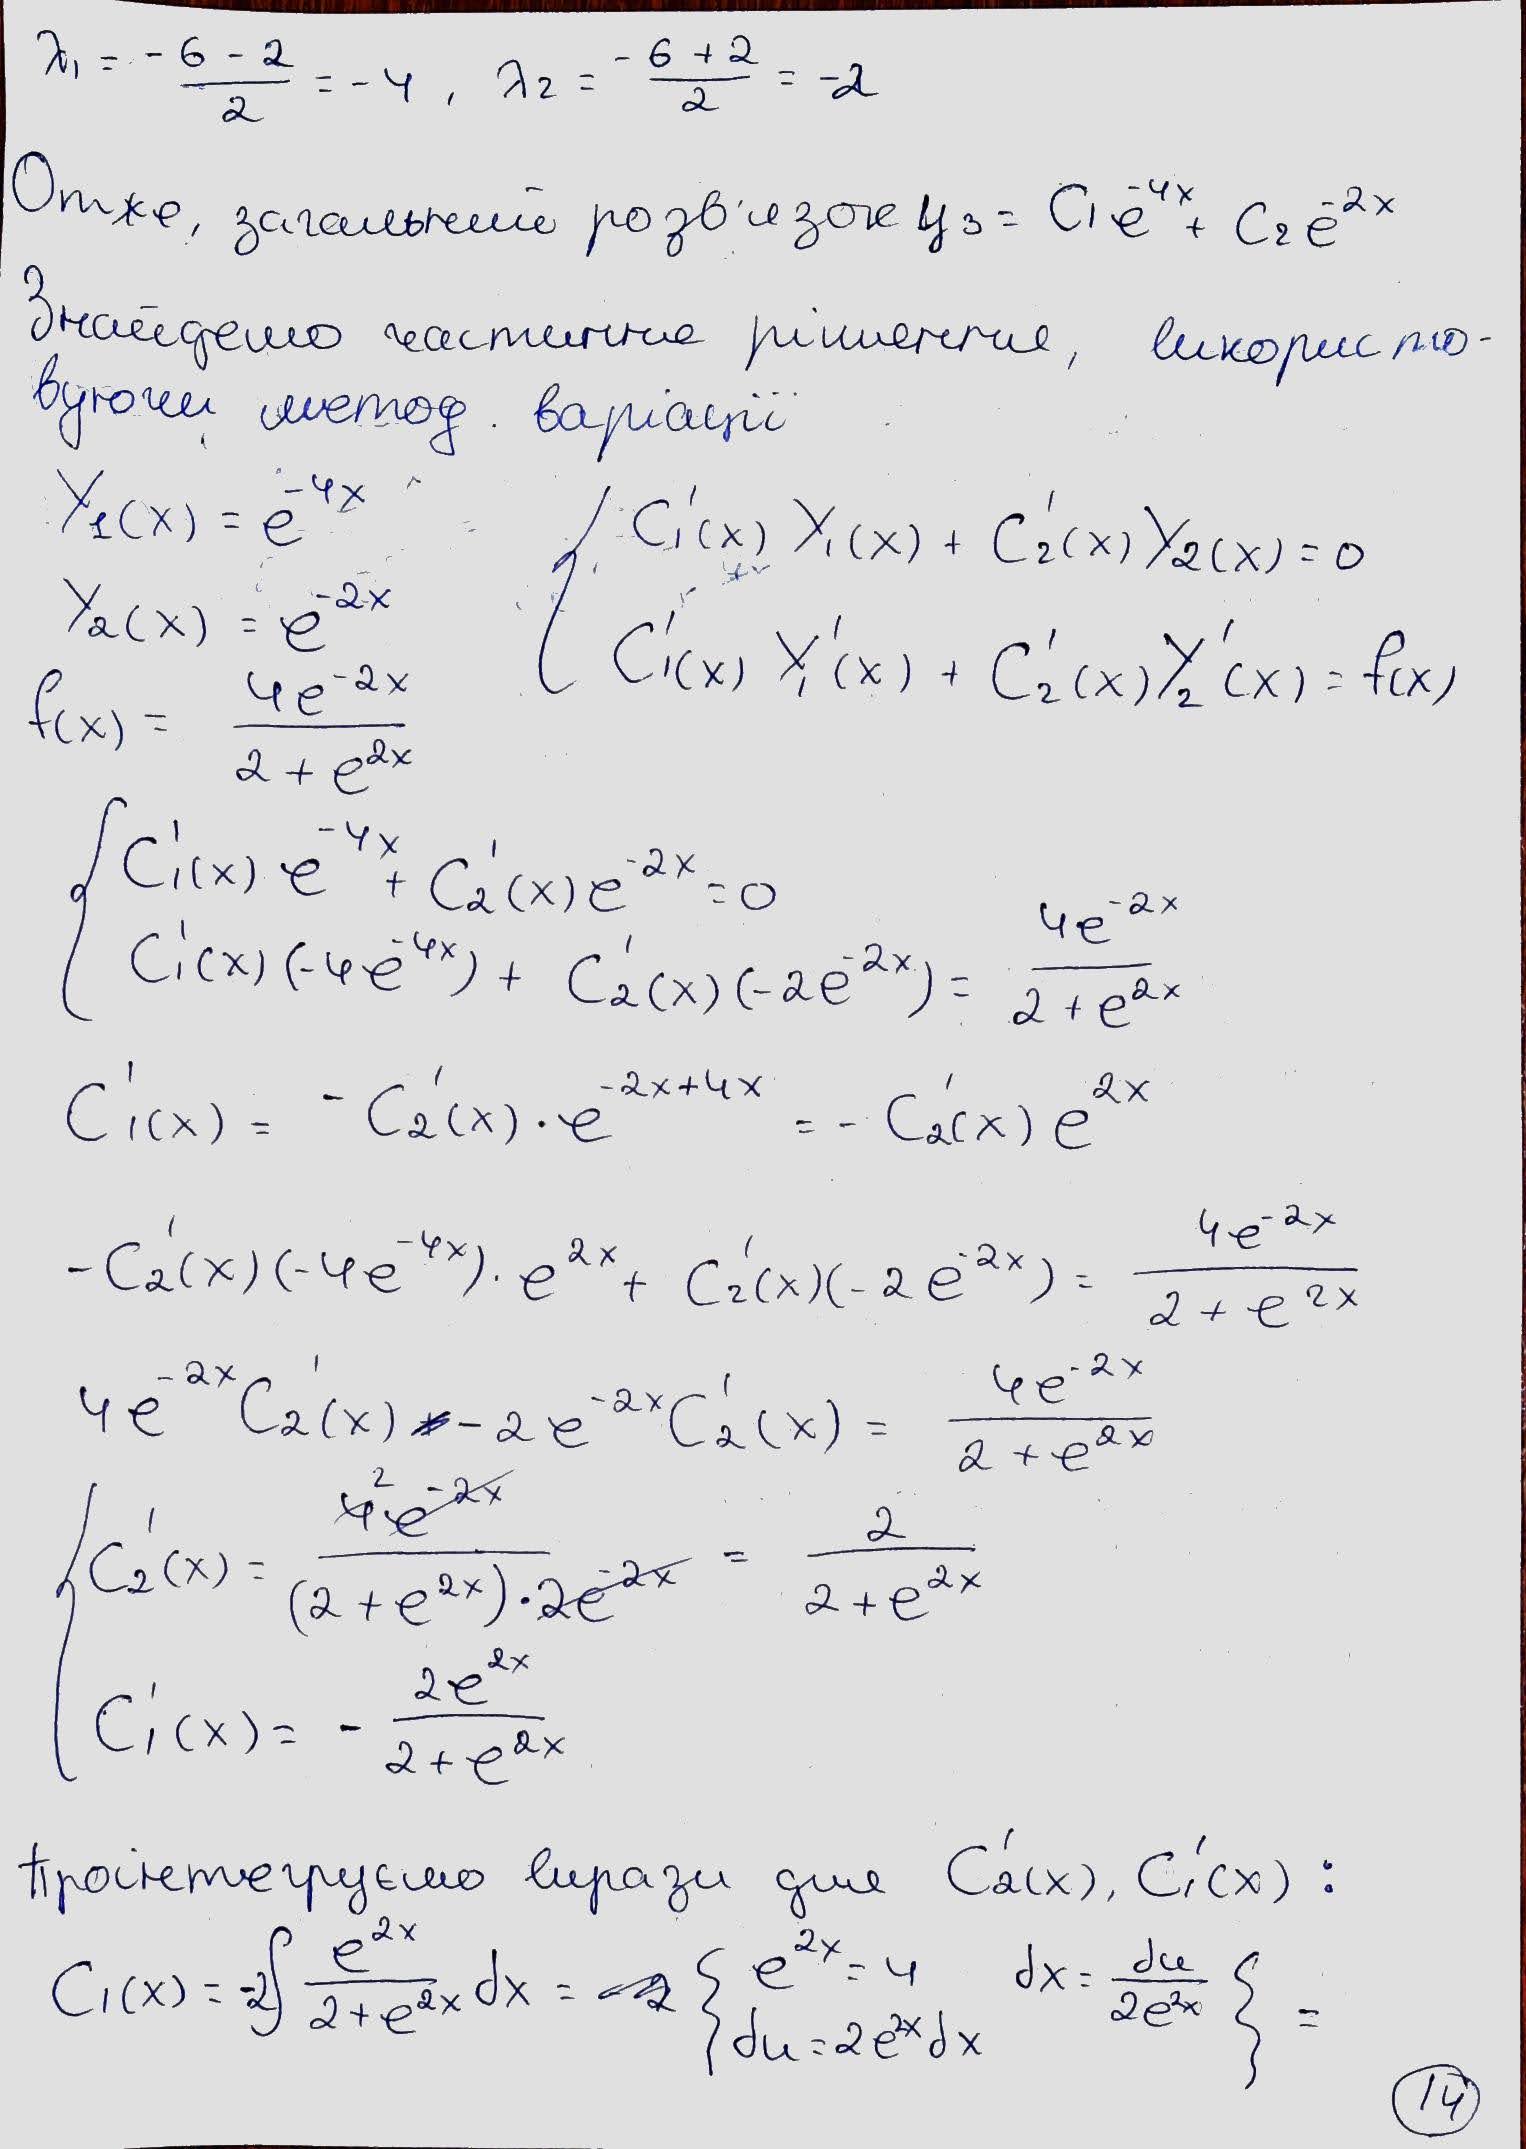 λ₁ = (-6 - 2)/2 = -4, λ₂ = (-6 + 2)/2 = -2
Отже, загальний розв'язок y₃ = C₁e^(-4x) + C₂e^(-2x)
Знайдемо частинне рішення, використо-
вуючи метод варіації
Y₁(x) = e^(-4x)
Y₂(x) = e^(-2x)
f(x) = 4e^(-2x)/(2 + e^(2x))
{ C₁'(x) Y₁(x) + C₂'(x) Y₂(x) = 0
C₁'(x) Y₁'(x) + C₂'(x) Y₂'(x) = f(x)
{ C₁'(x) e^(-4x) + C₂'(x) e^(-2x) = 0
C₁'(x)(-4e^(-4x)) + C₂'(x)(-2e^(-2x)) = 4e^(-2x)/(2 + e^(2x))
C₁'(x) = -C₂'(x) · e^(-2x+4x) = -C₂'(x) e^(2x)
-C₂'(x)(-4e^(-4x)) · e^(2x) + C₂'(x)(-2e^(-2x)) = 4e^(-2x)/(2 + e^(2x))
4e^(-2x) C₂'(x) - 2e^(-2x) C₂'(x) = 4e^(-2x)/(2 + e^(2x))
{ C₂'(x) = 4 2 e^(-2x)/((2 + e^(2x)) · 2e^(-2x)) = 2/(2 + e^(2x))
C₁'(x) = - 2e^(2x)/(2 + e^(2x))
Проінтегруємо вирази для C₂'(x), C₁'(x):
C₁(x) = -2∫ e^(2x)/(2 + e^(2x)) dx = { e^(2x) = u dx = du/(2e^(2x))
du = 2e^(2x) dx } =
14